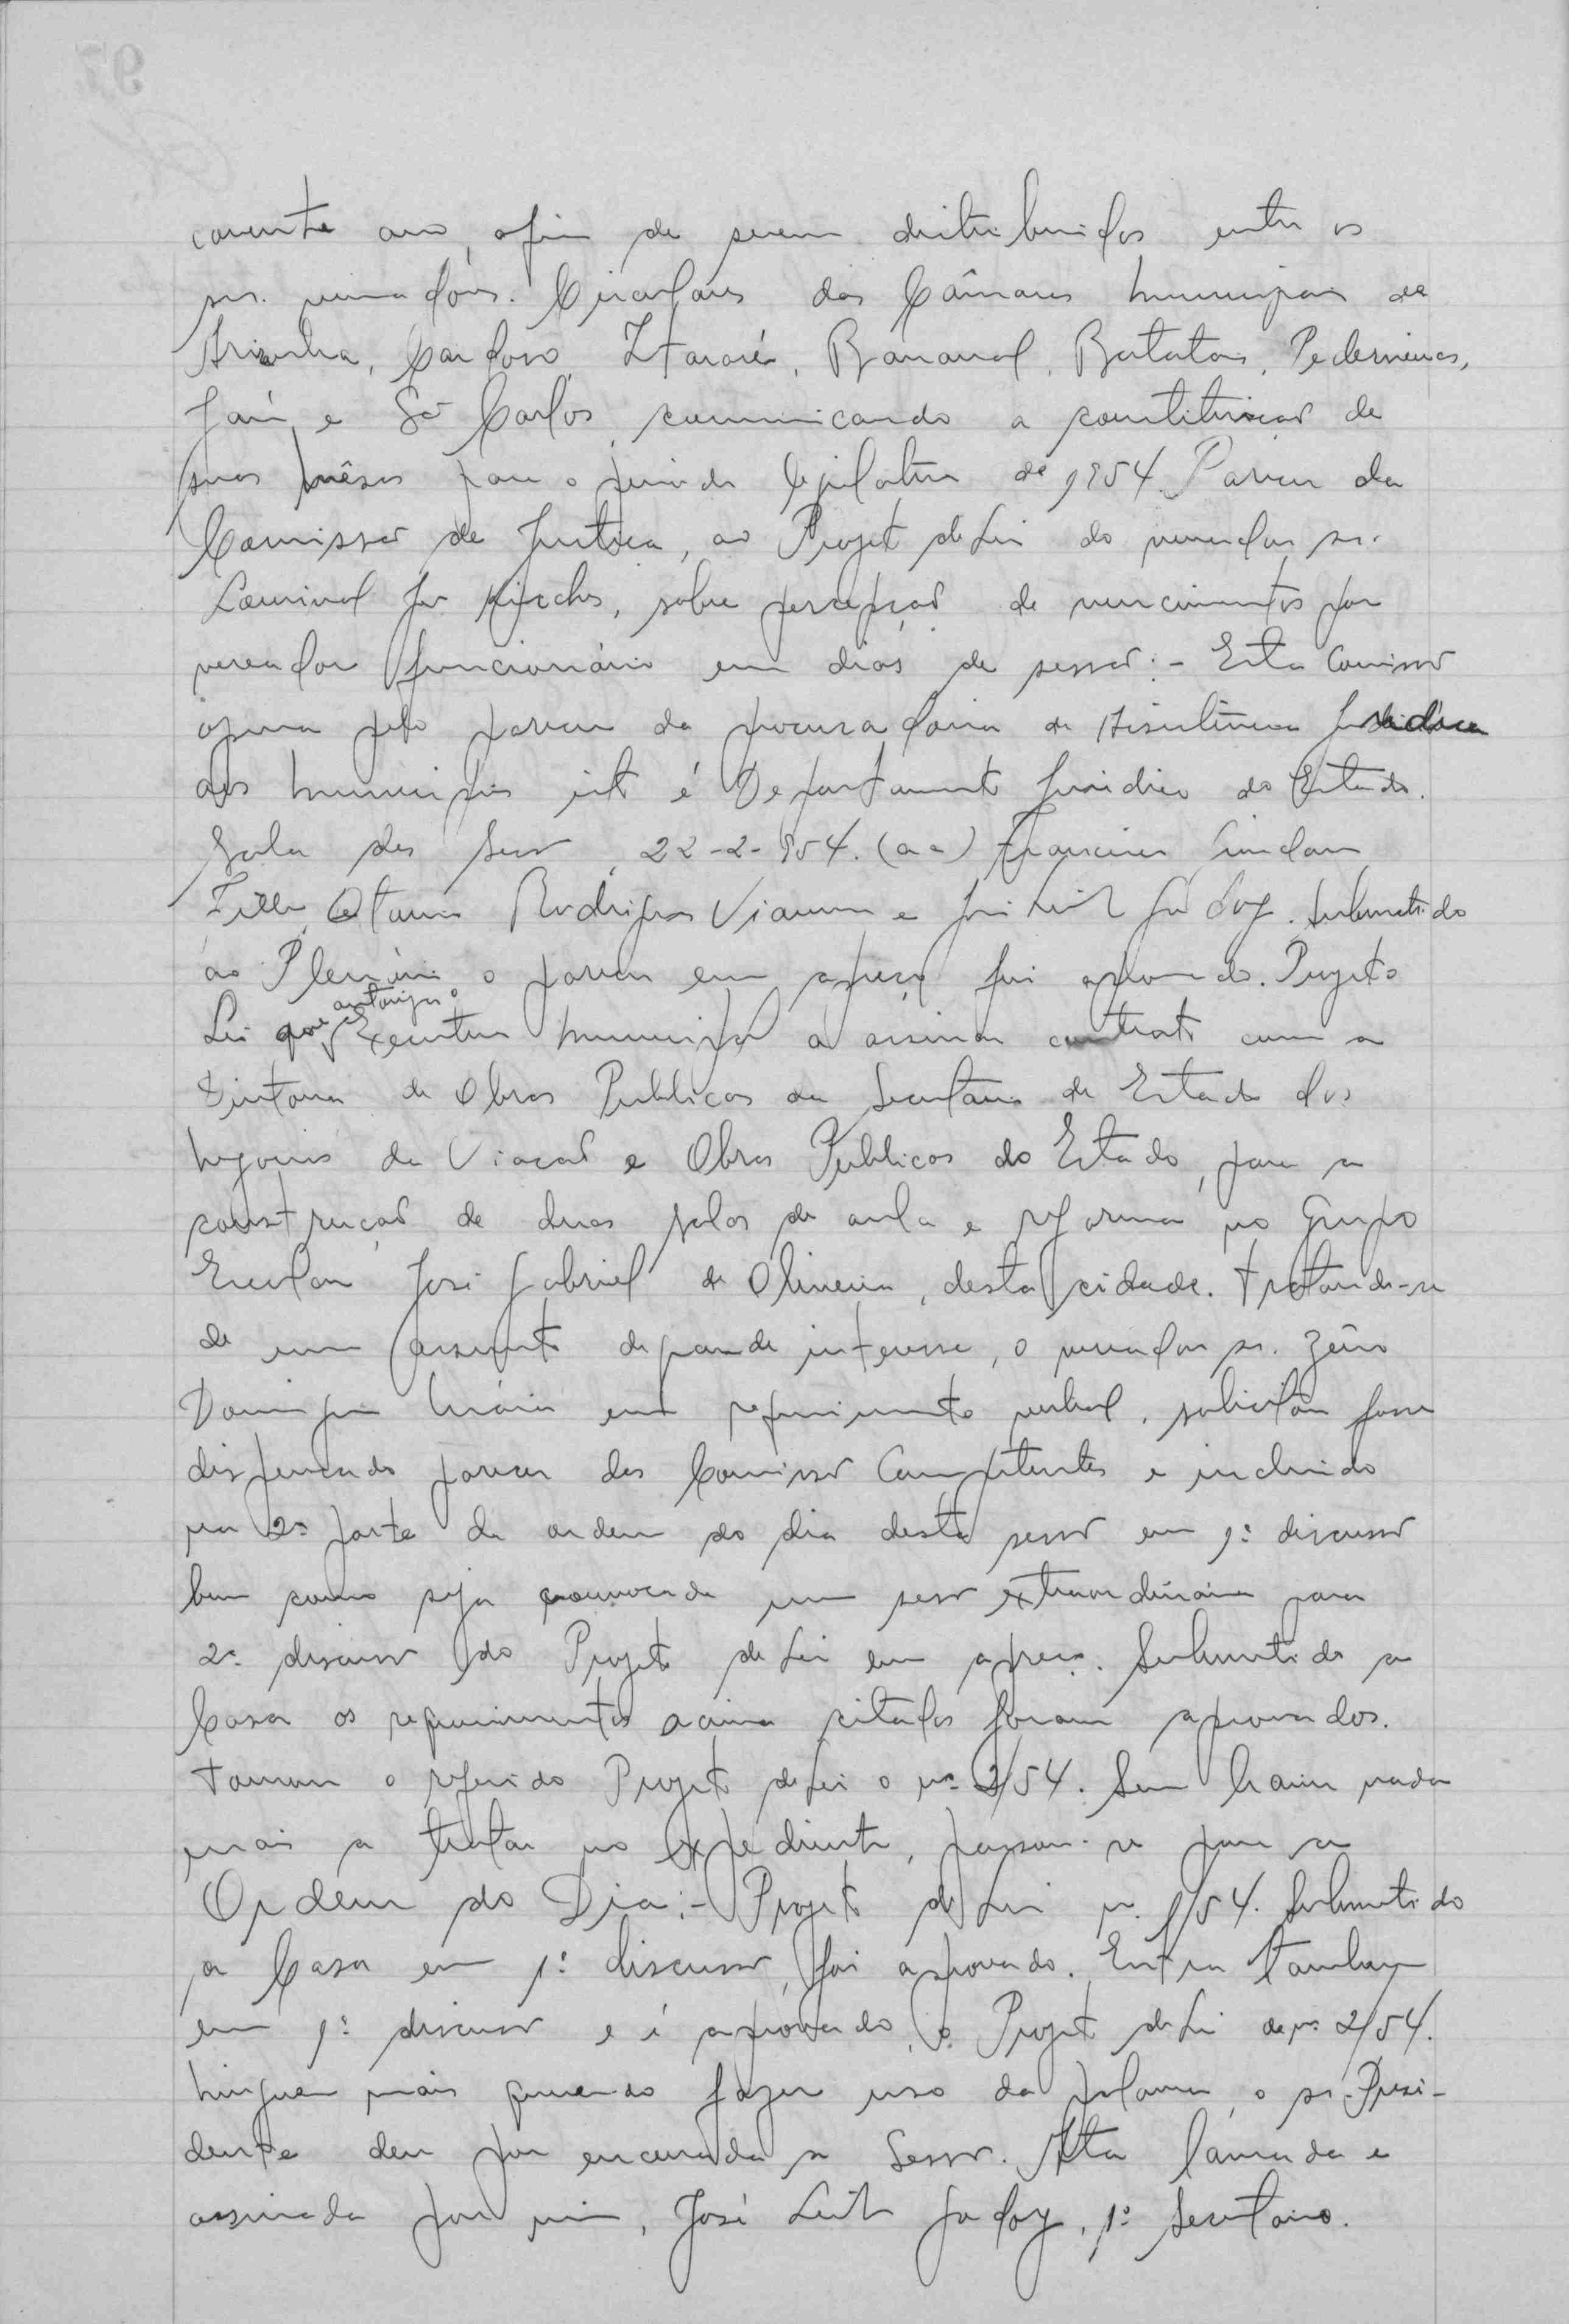 corrente ano, afim de serem distribuidos entre os
srs. vereadôres. Circulares das Câmaras Municipais de
Ariranha, Cardoso, Itararé, Bananal, Batatais, Pederneiras,
Jaú e São Carlos, comunicando a constituição de
suas mêsas para o periodo legislativo de 1954. Parecer da
Comissão de Justiça, ao Projeto de Lei do vereador sr.
Lourival, sobre percepção de vencimentos por
vereador funcionário em dias de sessão:- Esta Comissão
opina pelo parecer da procuradoria de Assistência Juridica
aos Municipios isto é Departamento Juridico do Estado.
Sala das Sessões, 22-2-954. (aa) Francisco
Filho, Otavio Rodrigues Vianna e José Leite Godoy. Submetido
ao Plenário o parecer em apreço foi aprovado. Projeto
Lei que autoriza o Executivo Municipal a assinar contrato com a
Diretoria de Obras Publicas da Secretaria de Estado dos
Negocios da Viação e Obras Públicas do Estado, para a
construção de duas salas de aula e reforma no Grupo
Escolar José Gabriel de Oliveira, desta cidade. Tratando-se
de um assunto de grande interesse, o vereador sr. Zêno
Domingos em requerimento verbal, solicitou fosse
dispensado parecer das Comissões Competentes e incluido
na 2ª parte da ordem do dia desta sessão em 1ª discussão
bem como seja convocada uma sessão extraordinária para
2ª discussão do Projeto de Lei em apreço. Submetido a
Casa os requerimentos acima citados foram aprovados.
Tomou o referido Projeto de Lei o nº 2/54. Sem haver nada
mais a tratar no expediente, passou-se para a
Ordem do Dia:- Projeto de Lei n. 1/54. Submetido
a Casa em 1ª discussão, foi aprovado. Entra tambem
em 1ª discussão e é aprovado, o Projeto de Lei de nº 2/54.
Ninguem mais querendo fazer uso da palavra, o sr. Presi-
dente deu por encerrada a Sessão. Ata lavrada e
assinada por mim, José Leite Godoy, 1º Secretario.